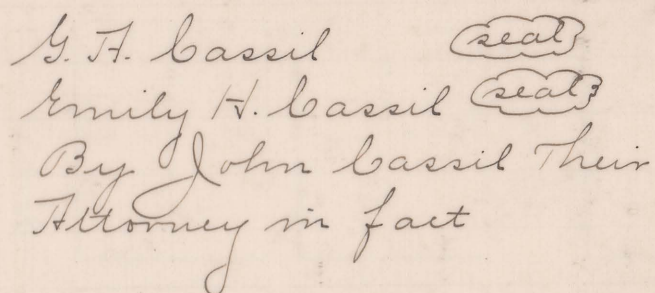 G. A. Cassil seal
Emily H. Cassil seal
By John Cassil Their
Attorney in fact